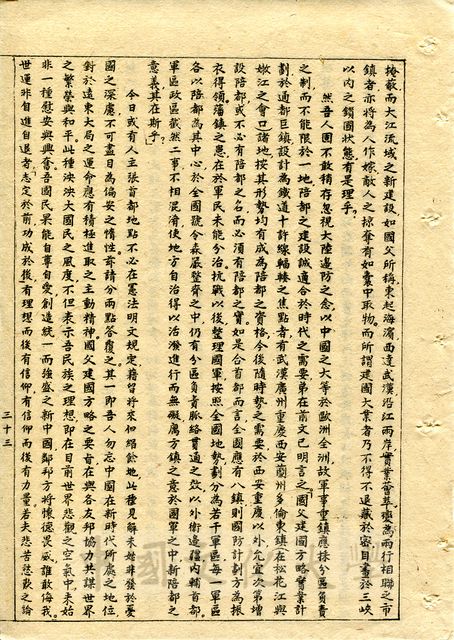 掩蔽而大江流域之新建設如國父所稱東起海濱西達武漢沿江兩岸實業薈萃變為兩行相聯之市
鎮者亦將為人作嫁敵人之掠奪有如囊中取物而所謂建國大業者乃不得不退藏於密自畫於三峽
以內之鎖國狀態有是理乎
然吾人固不敢稍存忽視大陸邊防之念以中國之大等於歐洲全洲故軍事重鎮應採分區負責
之制而不能限於一地陪都之建設誠適合於時代之需要弟在前文已明言之「國父建國方略實業計
劃於通都巨鎮設計為鐵道十許線輻輳之焦點者有武漢廣州重慶西安蘭州多倫東鎮在松花江與
嫩江之會口諸地按其形勢均有成為陪都之資格今後隨時勢之需要於西安重慶以外允宜次第增
設陪都或不必有陪都之名而必須有陪都之實如是合首都而言全國應有八鎮則國防計劃方為振
衣得領藩鎮之患在於軍民未能分治抗戰以後整理國軍按照全國地勢劃分為若干軍區每一軍區
各以陪都為其中心於全國號令森嚴整齊之中仍有分區負責脈絡貫通之效以外衛邊陲內輔首都
軍區政區截然二事不相混淆使地方自治得以活潑進行而無礙厲方鎮之意於國軍之中新陪都之
意義其在斯乎」
今日或有人主張首都地點不必在憲法明文規定藉留將來伸縮餘地此種見解未始非發於憂
國之深慮不可盡目為偏安之惰性茲請分兩點答復之其一即吾人勿忘中國在新時代所處之地位
對於遠東大局之運命應有積極進取之主動精神國父建國方略之要旨在與各友邦協力共謀世界
之繁榮與和平此種泱泱大國民之風度不但表示吾民族之理想即在目前世界悲觀之空氣中未始
非一種慰安與興奮吾國民果能自尊自愛創造統一而強盛之新中國鄰邦方將懷德畏威誰敢侮我
世運非自進自退者志定於前功成於後有理想而後有信仰有信仰而後有力量若夫悲苦愁歎之論
三十三